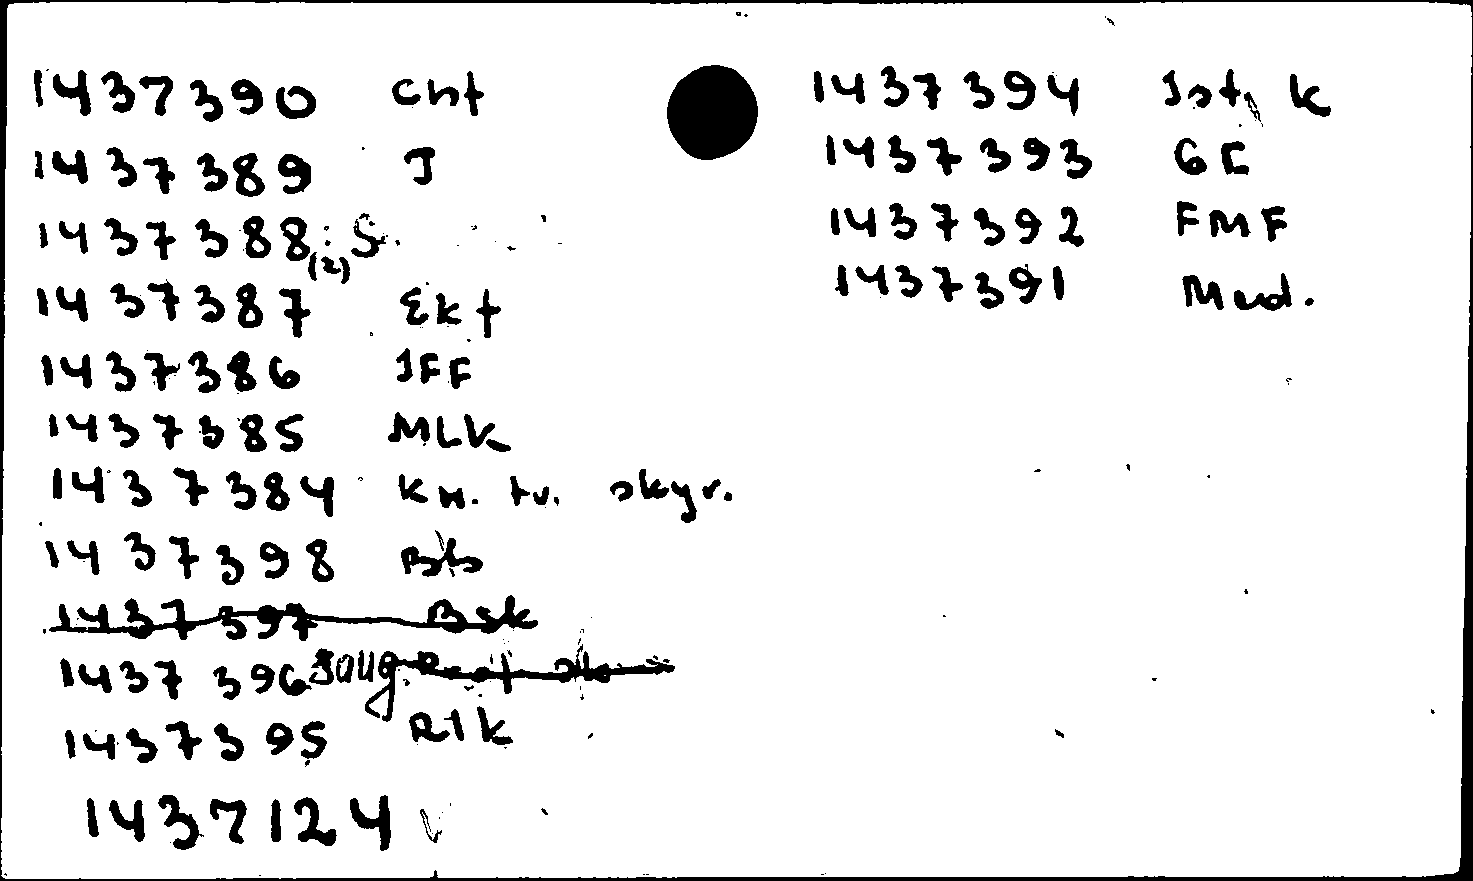 1437390 Cht
1437389 J
1437388 (2) S
1437387 Ekt
1437386 IFF
1437385 MLK
1437384 KM. tv. skyr.
1437398 Bb
1437397 Bsk
1437396 Saug
1437395 RIK
1437124 V
1437394 Jst, k
1437393 GE
1437392 FMF
1437391 Med.